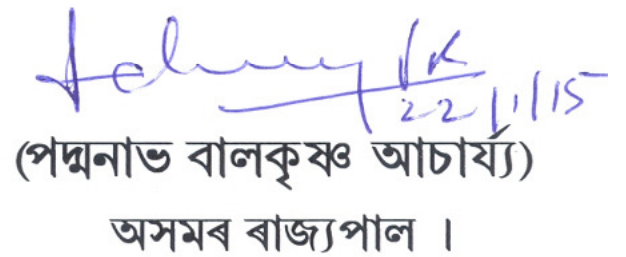 22/1/15
(পদ্মনাভ বালকৃষ্ণ আচাৰ্য্য)
অসমৰ ৰাজ্যপাল ।